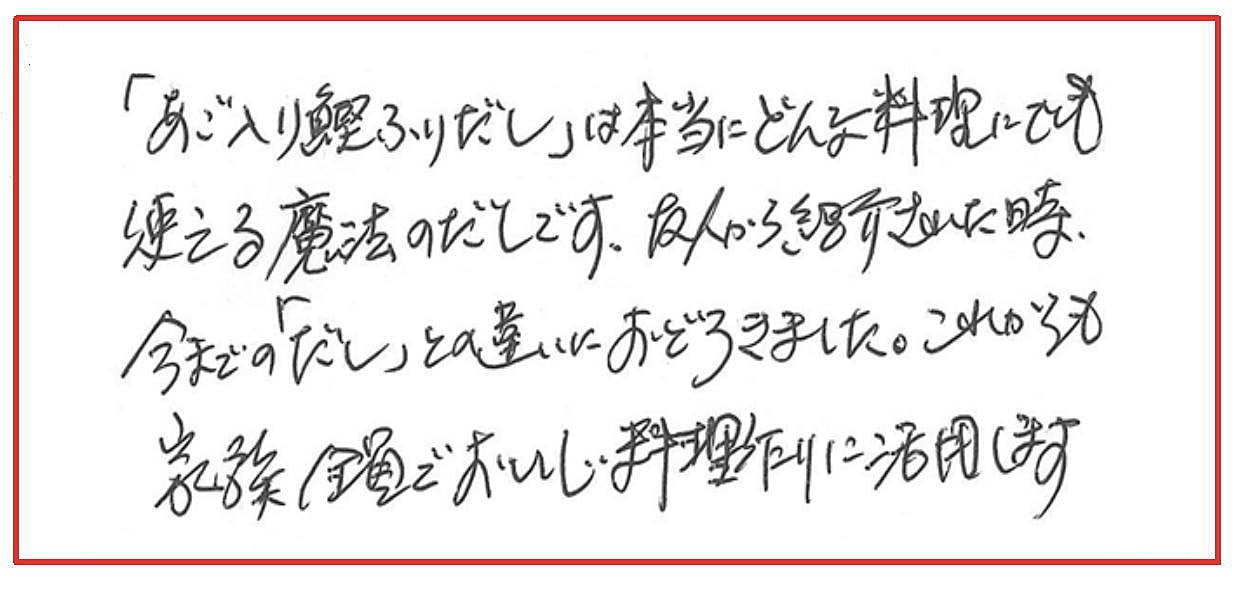 「あご入り鰹ふりだし」は本当にどんな料理にでも
使える魔法のだしです。友人から紹介された時、
今までの「だし」との違いにおどろきました。これからも
家族全員でおいしい料理作りに活用します